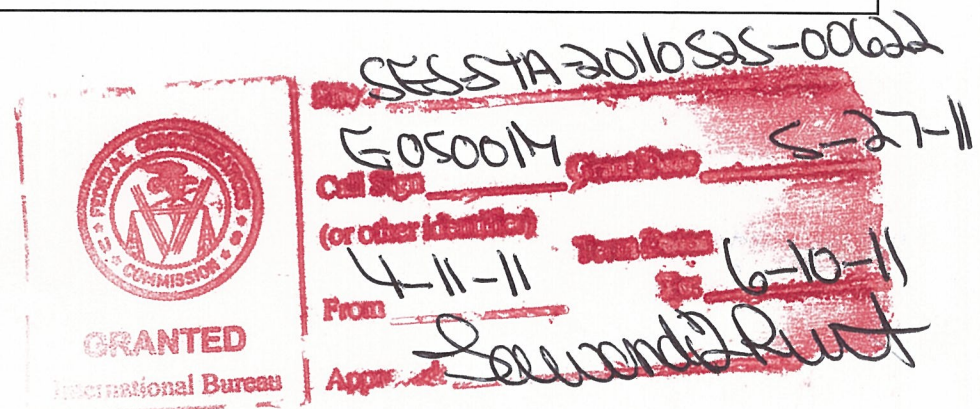 FEDERAL COMMUNICATIONS
COMMISSION
GRANTED
International Bureau
File SES-STA-20110525-00622
Call Sign E050014 Grant Date 5-27-11
(or other identifier)
Term Dates
From 4-11-11 To: 6-10-11
Approved